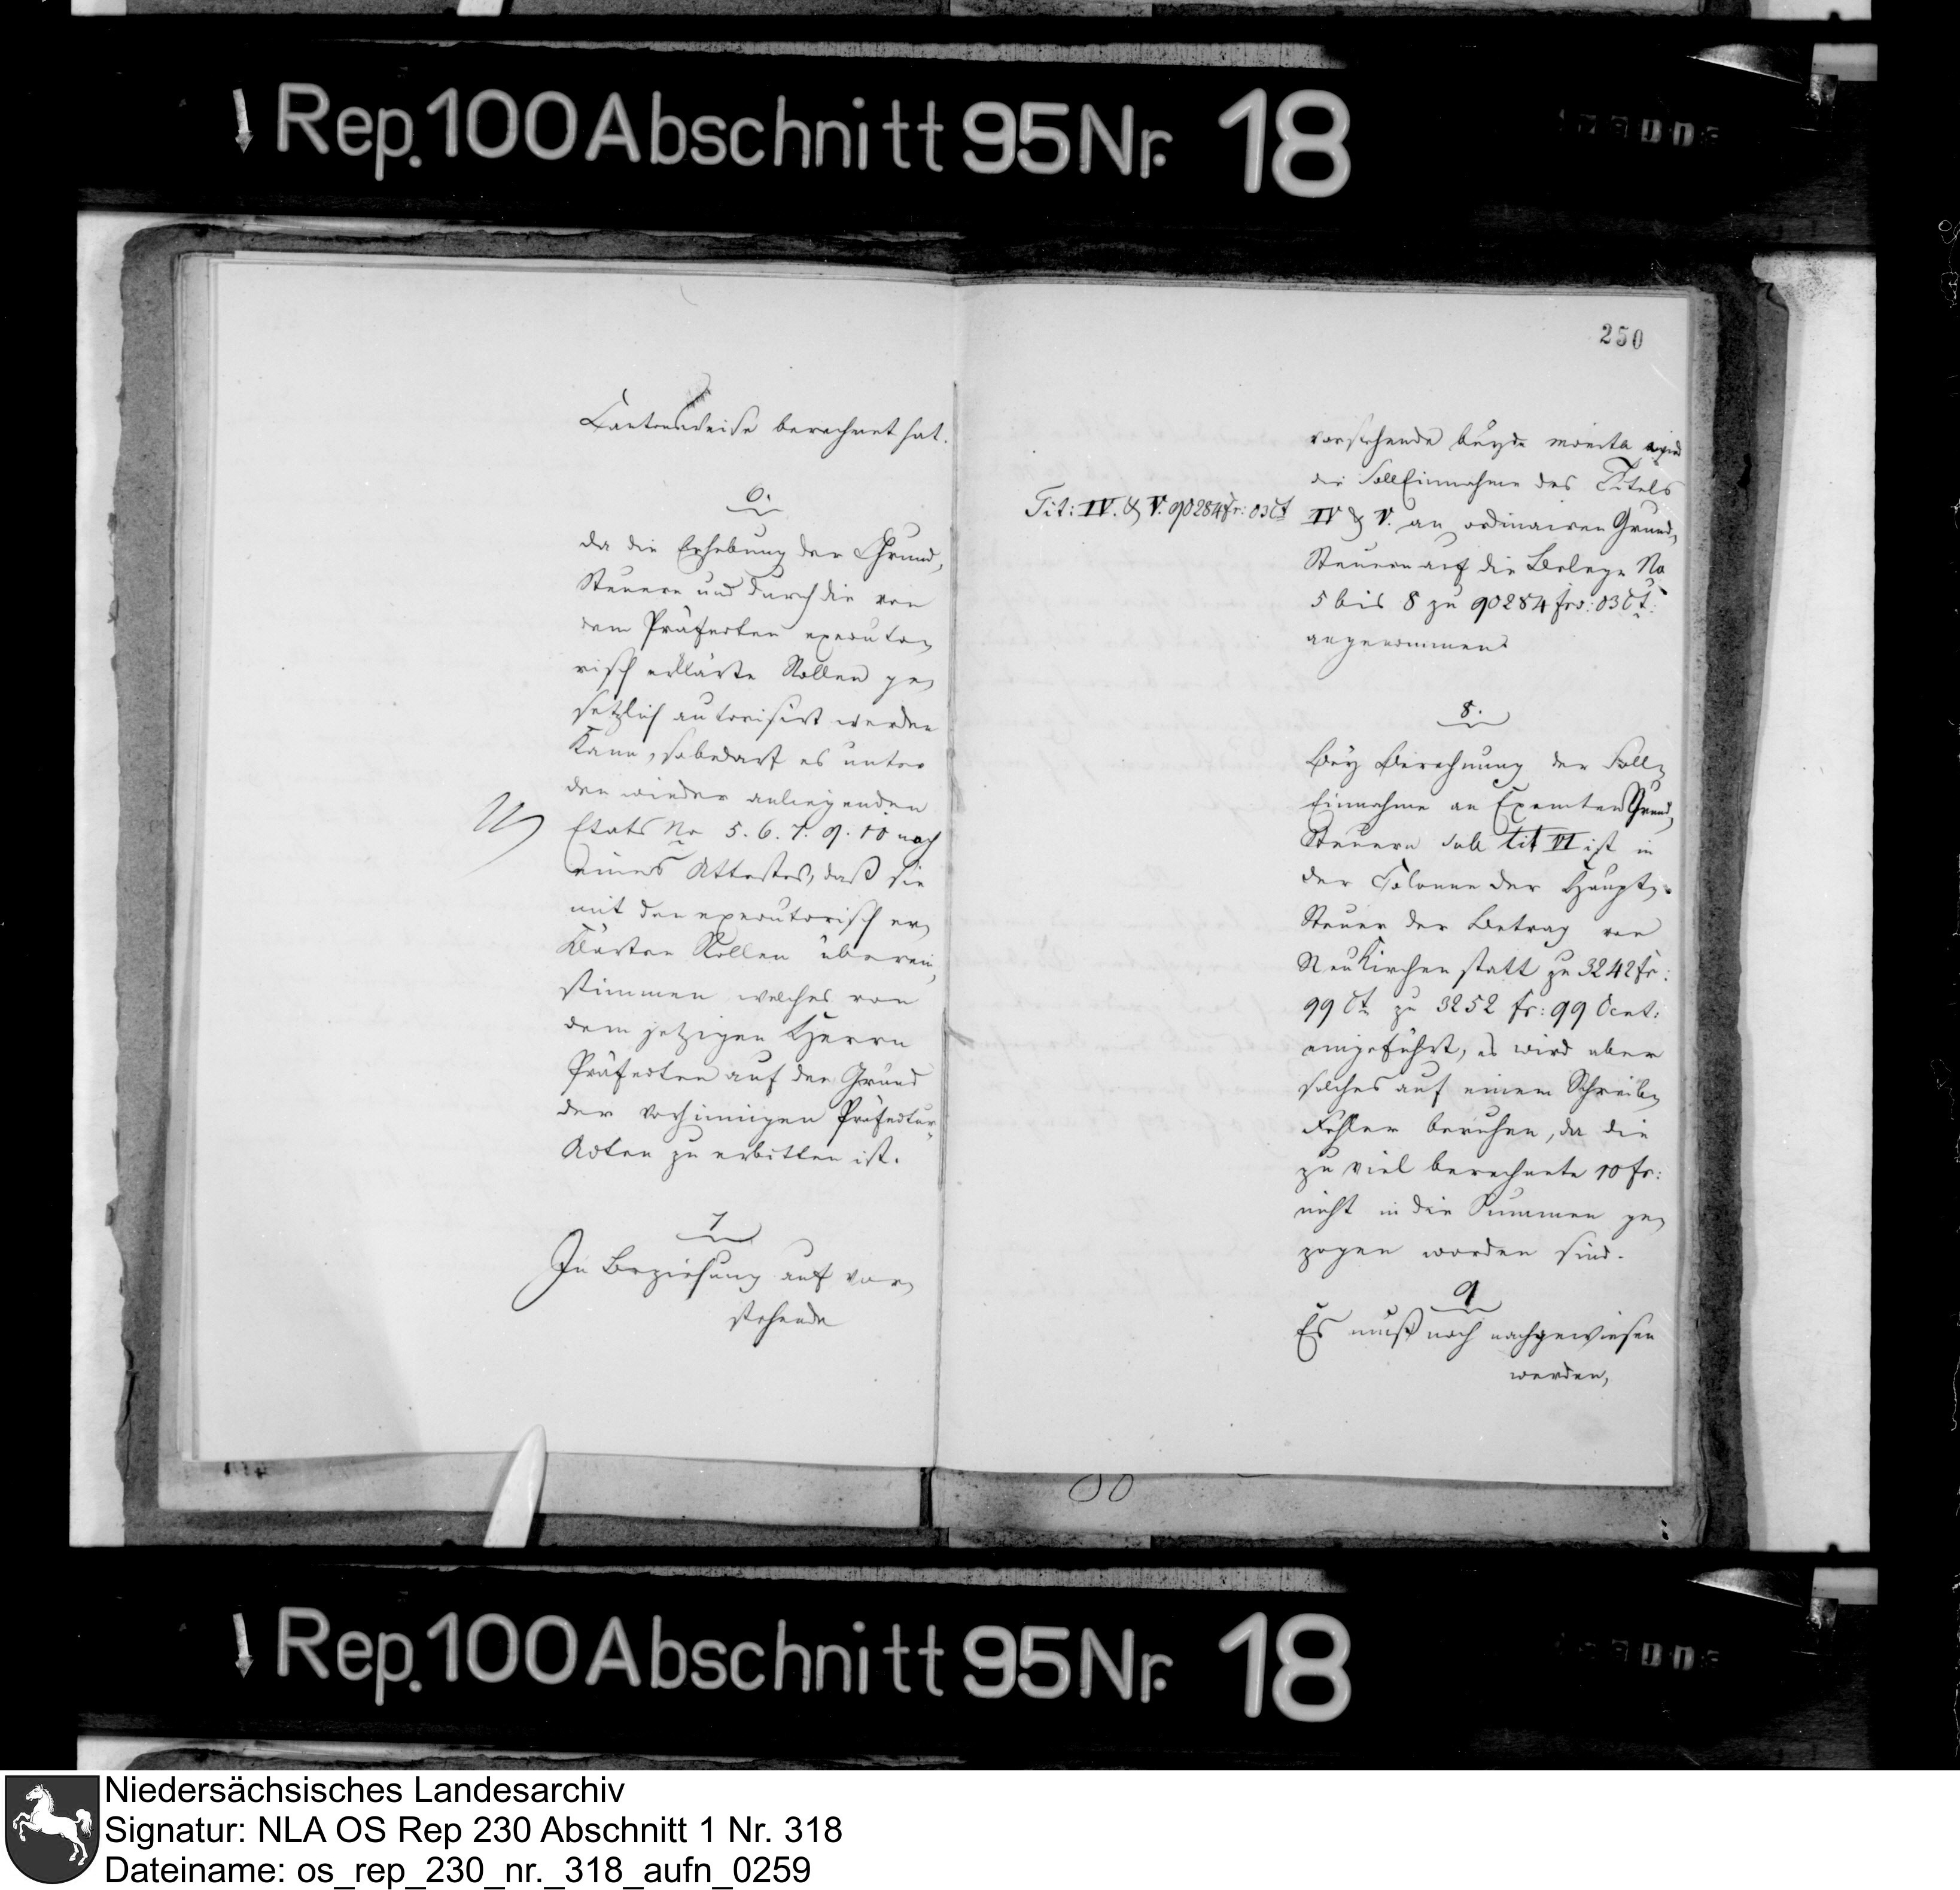 ↓ Rep. 100 Abschnitt 95 Nr. 18
Cantonsweise berechnet hat.
6.
da die Erhebung der Grund,
Steuern nur durch die von
dem Präfecten executo,
risch erklärte Rollen ge,
setzlich autorisirt werden
kann, so bedarf es unter
den wieder anliegenden
Etats No 5. 6. 7. 9. 10 noch
eines Attestes, daß sie
mit den executorisch er,
klärten Rollen überein,
stimmen welches von
dem jetzigen Herrn
Präfecten auf den Grund
der vorhinnigen Präfectur-
Acten zu erbitten ist.
7
In Beziehung auf vor,
stehende
250
vorstehende beyde monita wird
die Soll Einnahme des Titels
IV & V. an ordinairen Grund,
Steuern auf die Belege No
5 bis 8 zu 90284 frs: 03 Ct:
angenommen
Tit: IV. & V. 90284 fr: 03 Ct
8.
Bey Berechnung der Soll,
Einnahme an Exemten Grund,
Steuern sub tit VI ist in
der Colonne der Haupt,
Steuer der Betrag von
Neukirchen statt zu 3242 fr:
99 Ct zu 3252 fr: 99 Cent:
eingeführt, es wird aber
solches auf einem Schreib,
Fehler beruhen, da die
zu viel berechnete 10 fr:
nicht in die Summen ge,
zogen worden sind.
9
Es muß noch nachgewiesen
werden,
↓ Rep. 100 Abschnitt 95 Nr. 18
Niedersächsisches Landesarchiv
Signatur: NLA OS Rep 230 Abschnitt 1 Nr. 318
Dateiname: os_rep_230_nr._318_aufn_0259